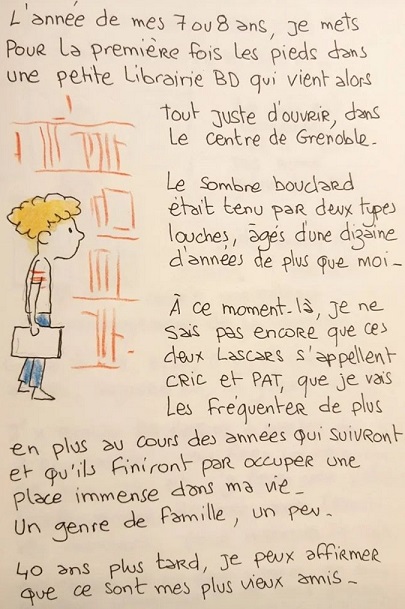 L'année de mes 7 ou 8 ans, je mets
Pour la première fois les pieds dans
une petite Librairie BD qui vient alors
tout juste d'ouvrir, dans
Le centre de Grenoble_
Le sombre bouclard
était tenu par deux types
louches, âgés d'une dizaine
d'années de plus que moi_
À ce moment-là, je ne
sais pas encore que ces
deux Lascars s'appellent
CRIC et PAT, que je vais
Les fréquenter de plus
en plus au cours des années qui suivront
et qu'ils finiront par occuper une
place immense dans ma vie_
Un genre de famille, un peu_
40 ans plus tard, je peux affirmer
que ce sont mes plus vieux amis_